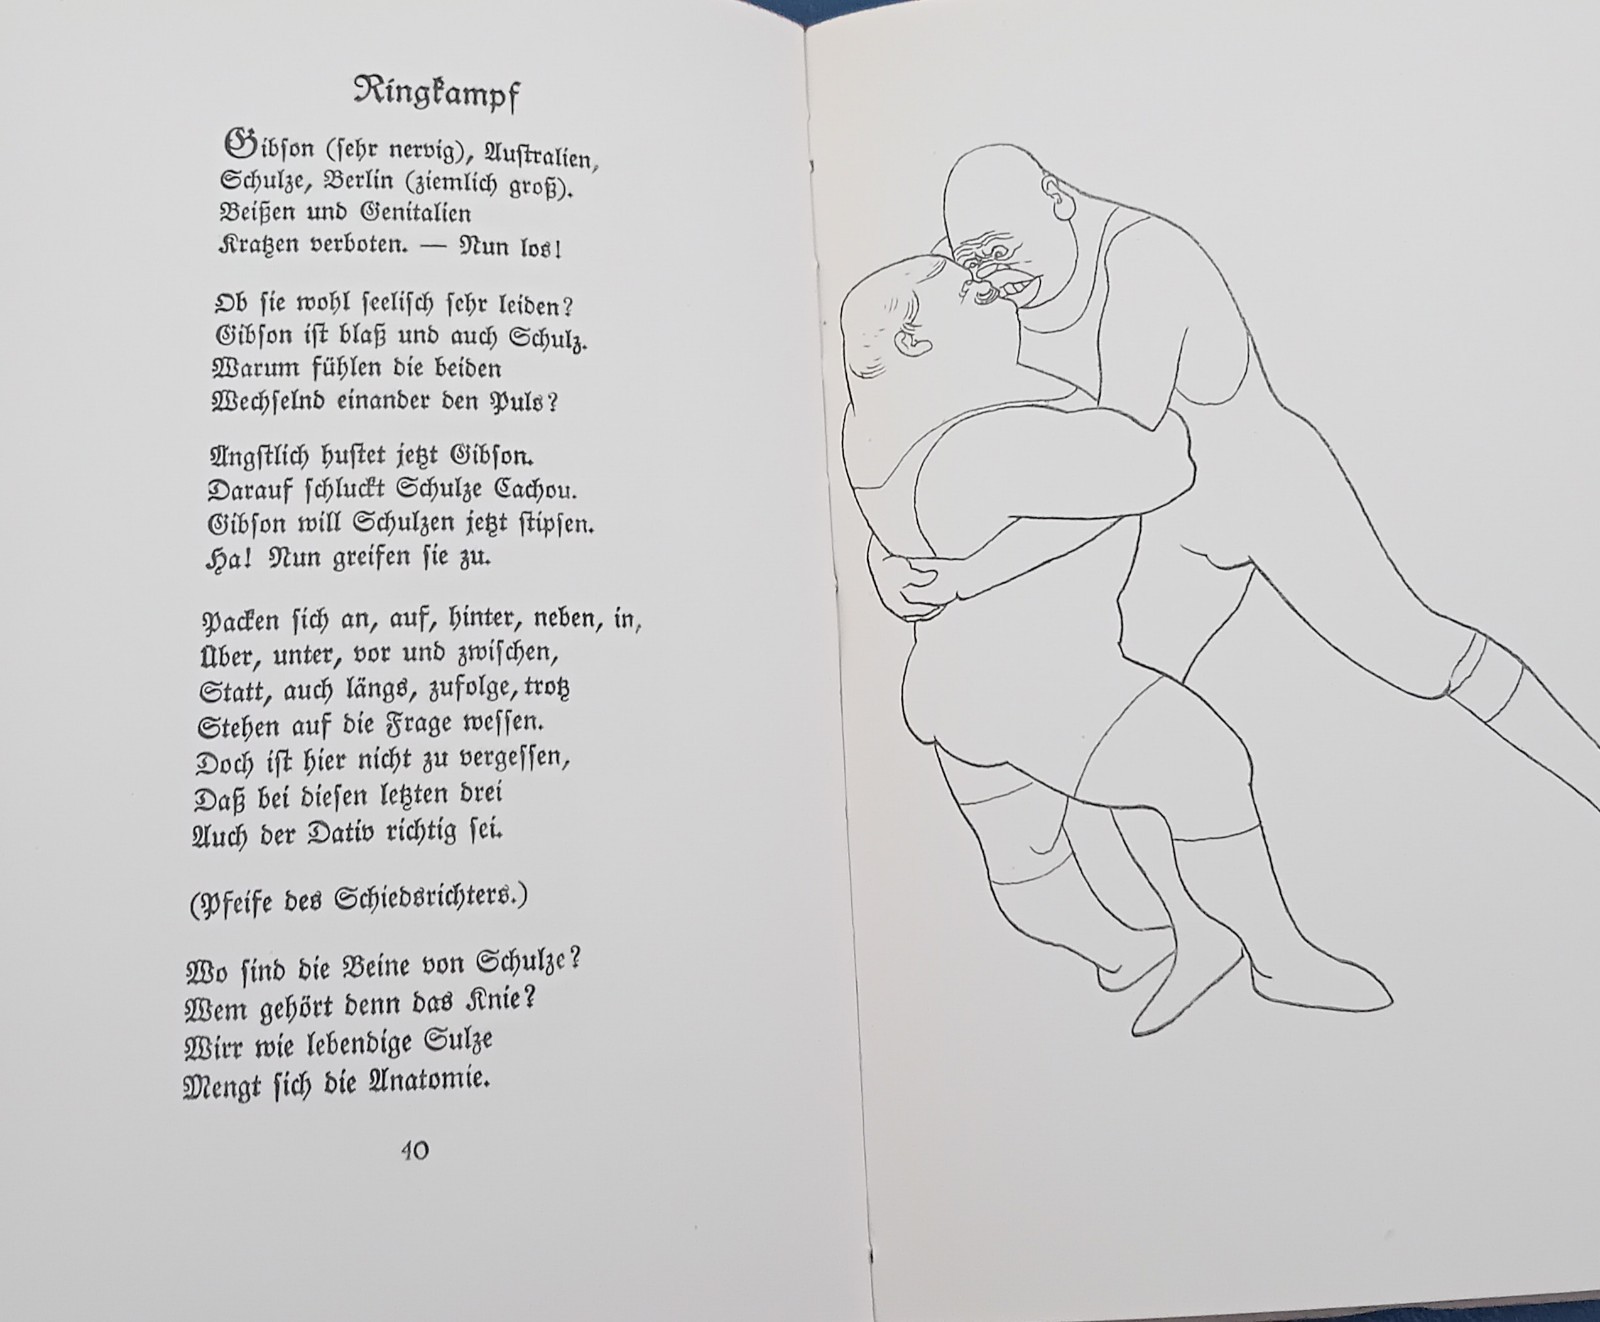 Ringkampf
Gibson (sehr nervig), Australien,
Schulze, Berlin (ziemlich groß).
Beißen und Genitalien
Kratzen verboten. — Nun los!
Ob sie wohl seelisch sehr leiden?
Gibson ist blaß und auch Schulz.
Warum fühlen die beiden
Wechselnd einander den Puls?
Ängstlich hustet jetzt Gibson.
Darauf schluckt Schulze Cachou.
Gibson will Schulzen jetzt stipsen.
Ha! Nun greifen sie zu.
Packen sich an, auf, hinter, neben, in,
Über, unter, vor und zwischen,
Statt, auch längs, zufolge, trotz
Stehen auf die Frage wessen.
Doch ist hier nicht zu vergessen,
Daß bei diesen letzten drei
Auch der Dativ richtig sei.
(Pfeife des Schiedsrichters.)
Wo sind die Beine von Schulze?
Wem gehört denn das Knie?
Wirr wie lebendige Sulze
Mengt sich die Anatomie.
40